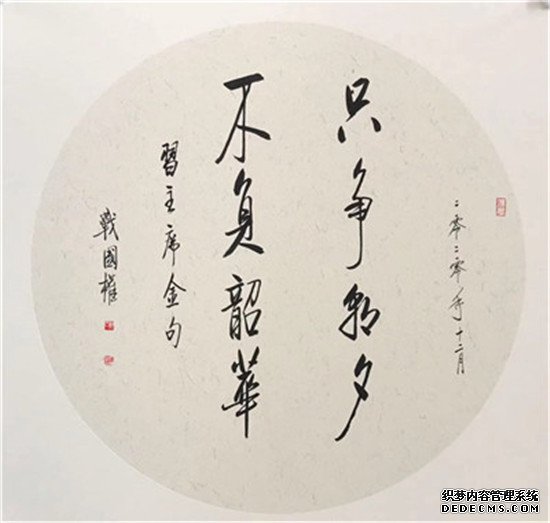 二零二零年十二月
只争朝夕
不負韶華
習主席金句
戰國權
织梦内容管理系统
DEDECMS.COM